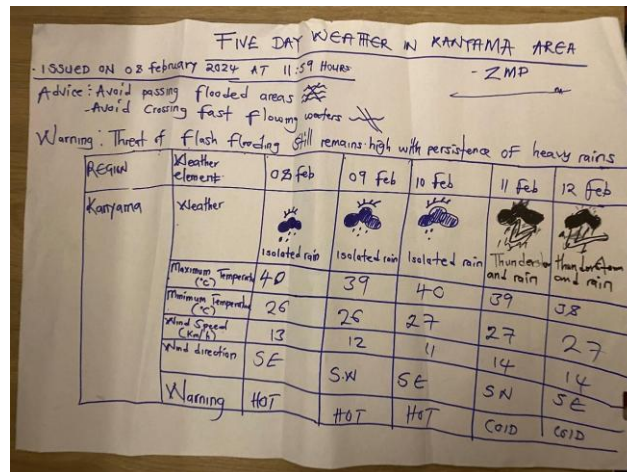 FIVE DAY WEATHER IN KANYAMA AREA
- ISSUED ON 08 february 2024 AT 11:59 HOURS
- ZMP
Advice: Avoid passing flooded areas
- Avoid Crossing fast flowing waters
Warning: Threat of flash flooding still remains high with persistence of heavy rains
REGION Weather element 08 feb 09 feb 10 feb 11 feb 12 feb
Kanyama Weather Isolated rain Isolated rain Isolated rain and rain and rain
Maximum (°C) 40 39 40 39 38
Minimum (°C) 26 26 27 27 27
Wind Speed (Km/h) 13 12 11 14 14
Wind direction SE S.W SE SW SE
Warning HOT HOT HOT COID COID